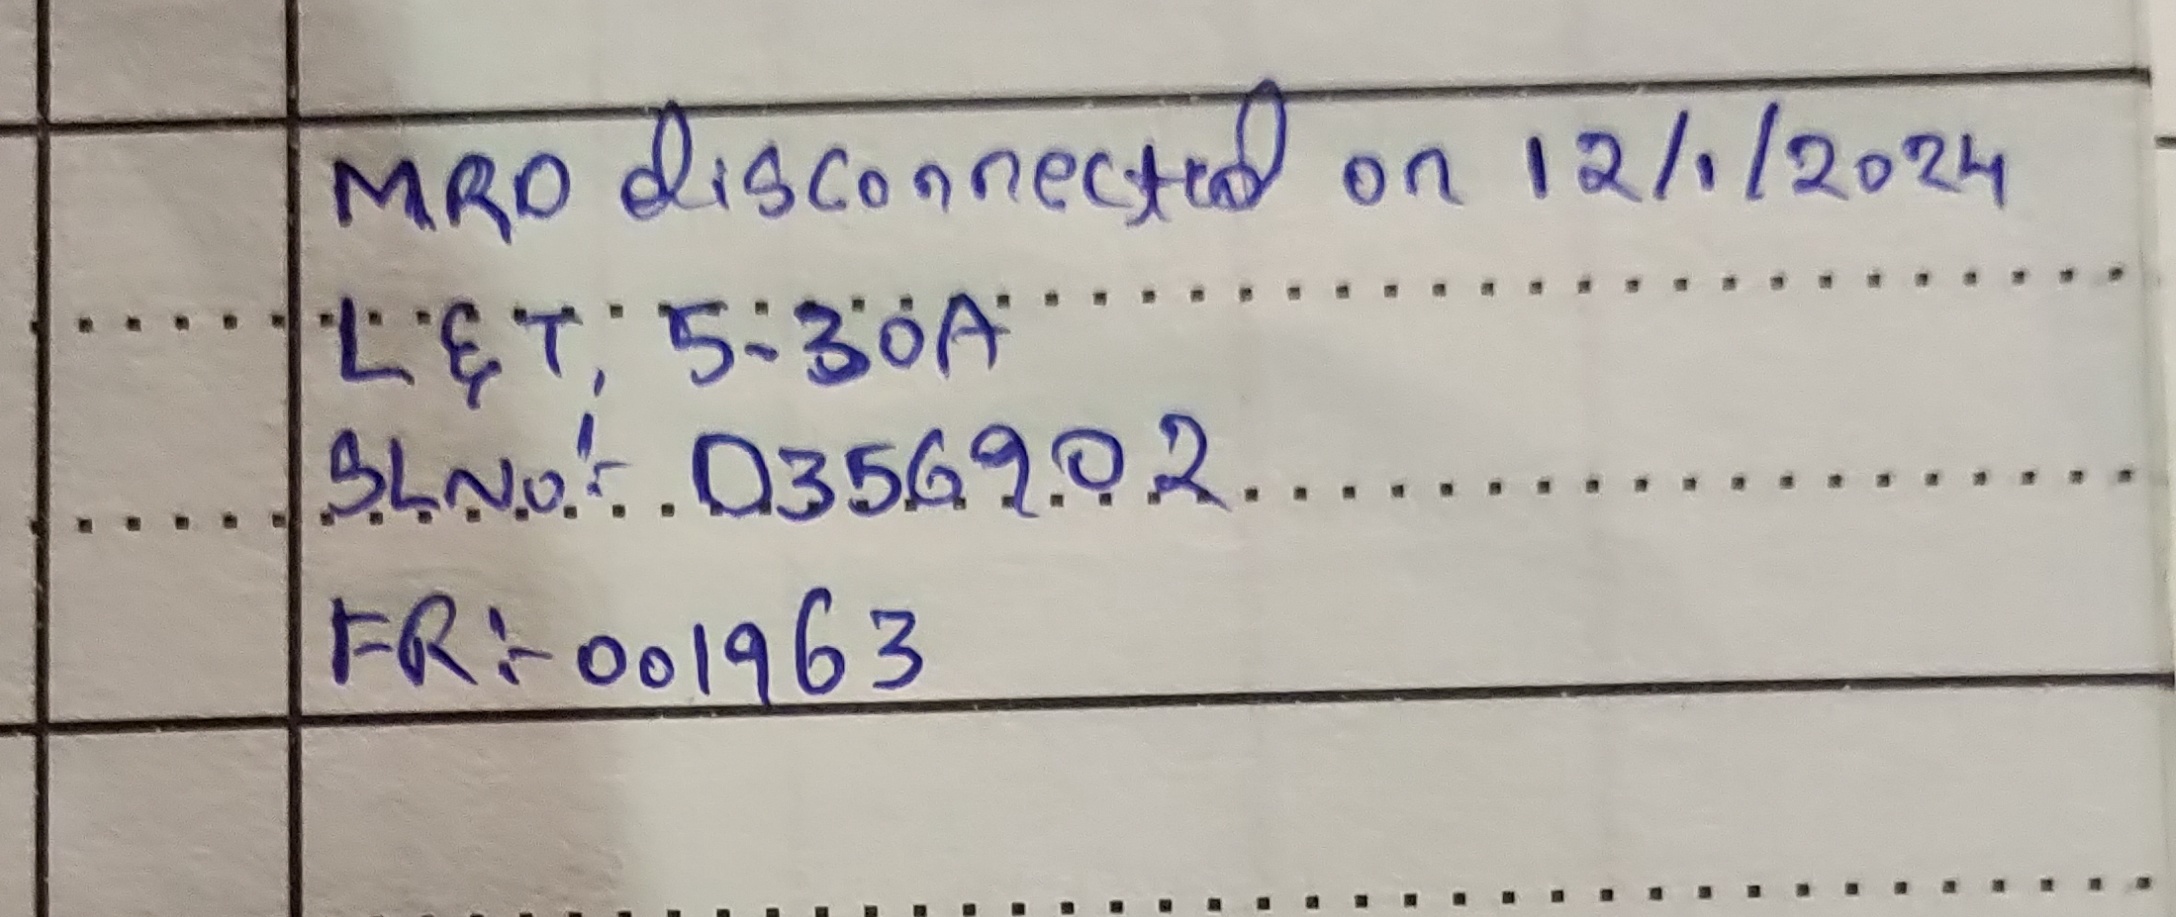 MRD disconnected on 12/1/2024
L&T, 5-30A
SLNO:- 0356902
FR:- 001963